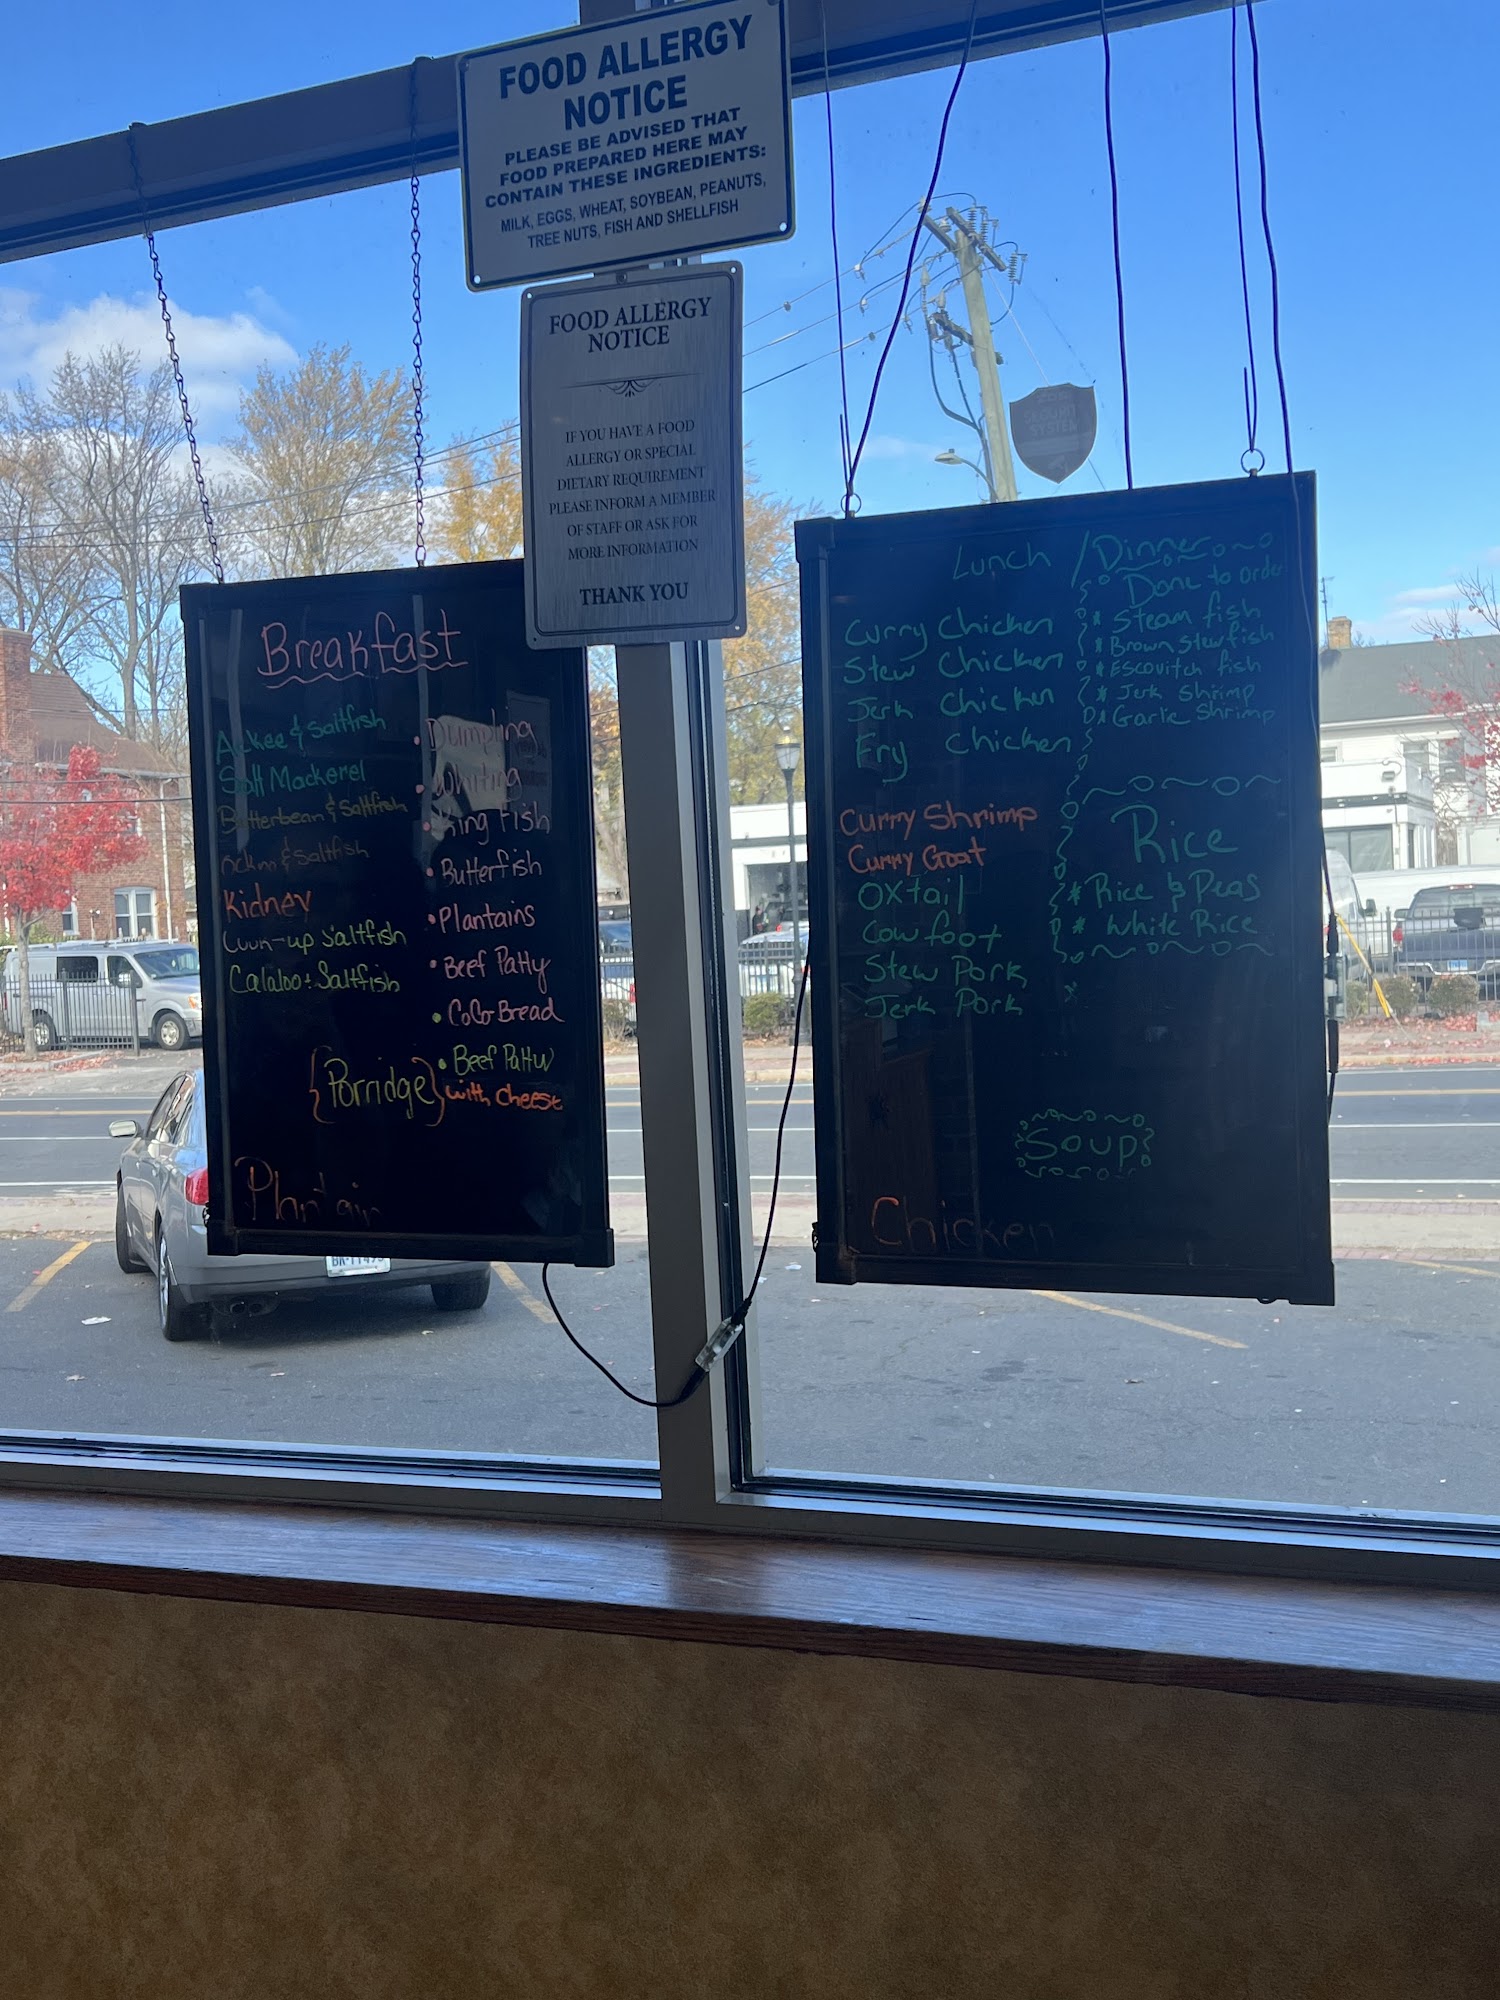 FOOD ALLERGY
NOTICE
PLEASE BE ADVISED THAT
FOOD PREPARED HERE MAY
CONTAIN THESE INGREDIENTS:
MILK, EGGS, WHEAT, SOYBEAN, PEANUTS,
TREE NUTS, FISH AND SHELLFISH
FOOD ALLERGY
NOTICE
IF YOU HAVE A FOOD
ALLERGY OR SPECIAL
DIETARY REQUIREMENT
PLEASE INFORM A MEMBER
OF STAFF OR ASK FOR
MORE INFORMATION
THANK YOU
Breakfast
Ackee & Saltfish
Salt Mackerel
Butterbean & Saltfish
& Saltfish
Kidney
Cook-up Saltfish
Calaloo + Saltfish
• Dumpling
• Whiting
• King Fish
• Butterfish
• Plantains
• Beef Patty
• CoCo Bread
• Beef Patty
with cheese
{Porridge}
Plantain
Lunch / Dinner
Curry Chicken
Stew Chicken
Jerk Chicken
Fry Chicken
Curry Shrimp
Curry Goat
Oxtail
Cow foot
Stew Pork
Jerk Pork
Done to order
* Steam fish
* Brown Stew fish
* Escovitch fish
* Jerk Shrimp
* Garlic Shrimp
Rice
* Rice & Peas
* White Rice
Soup
Chicken
SECURITY
SYSTEM